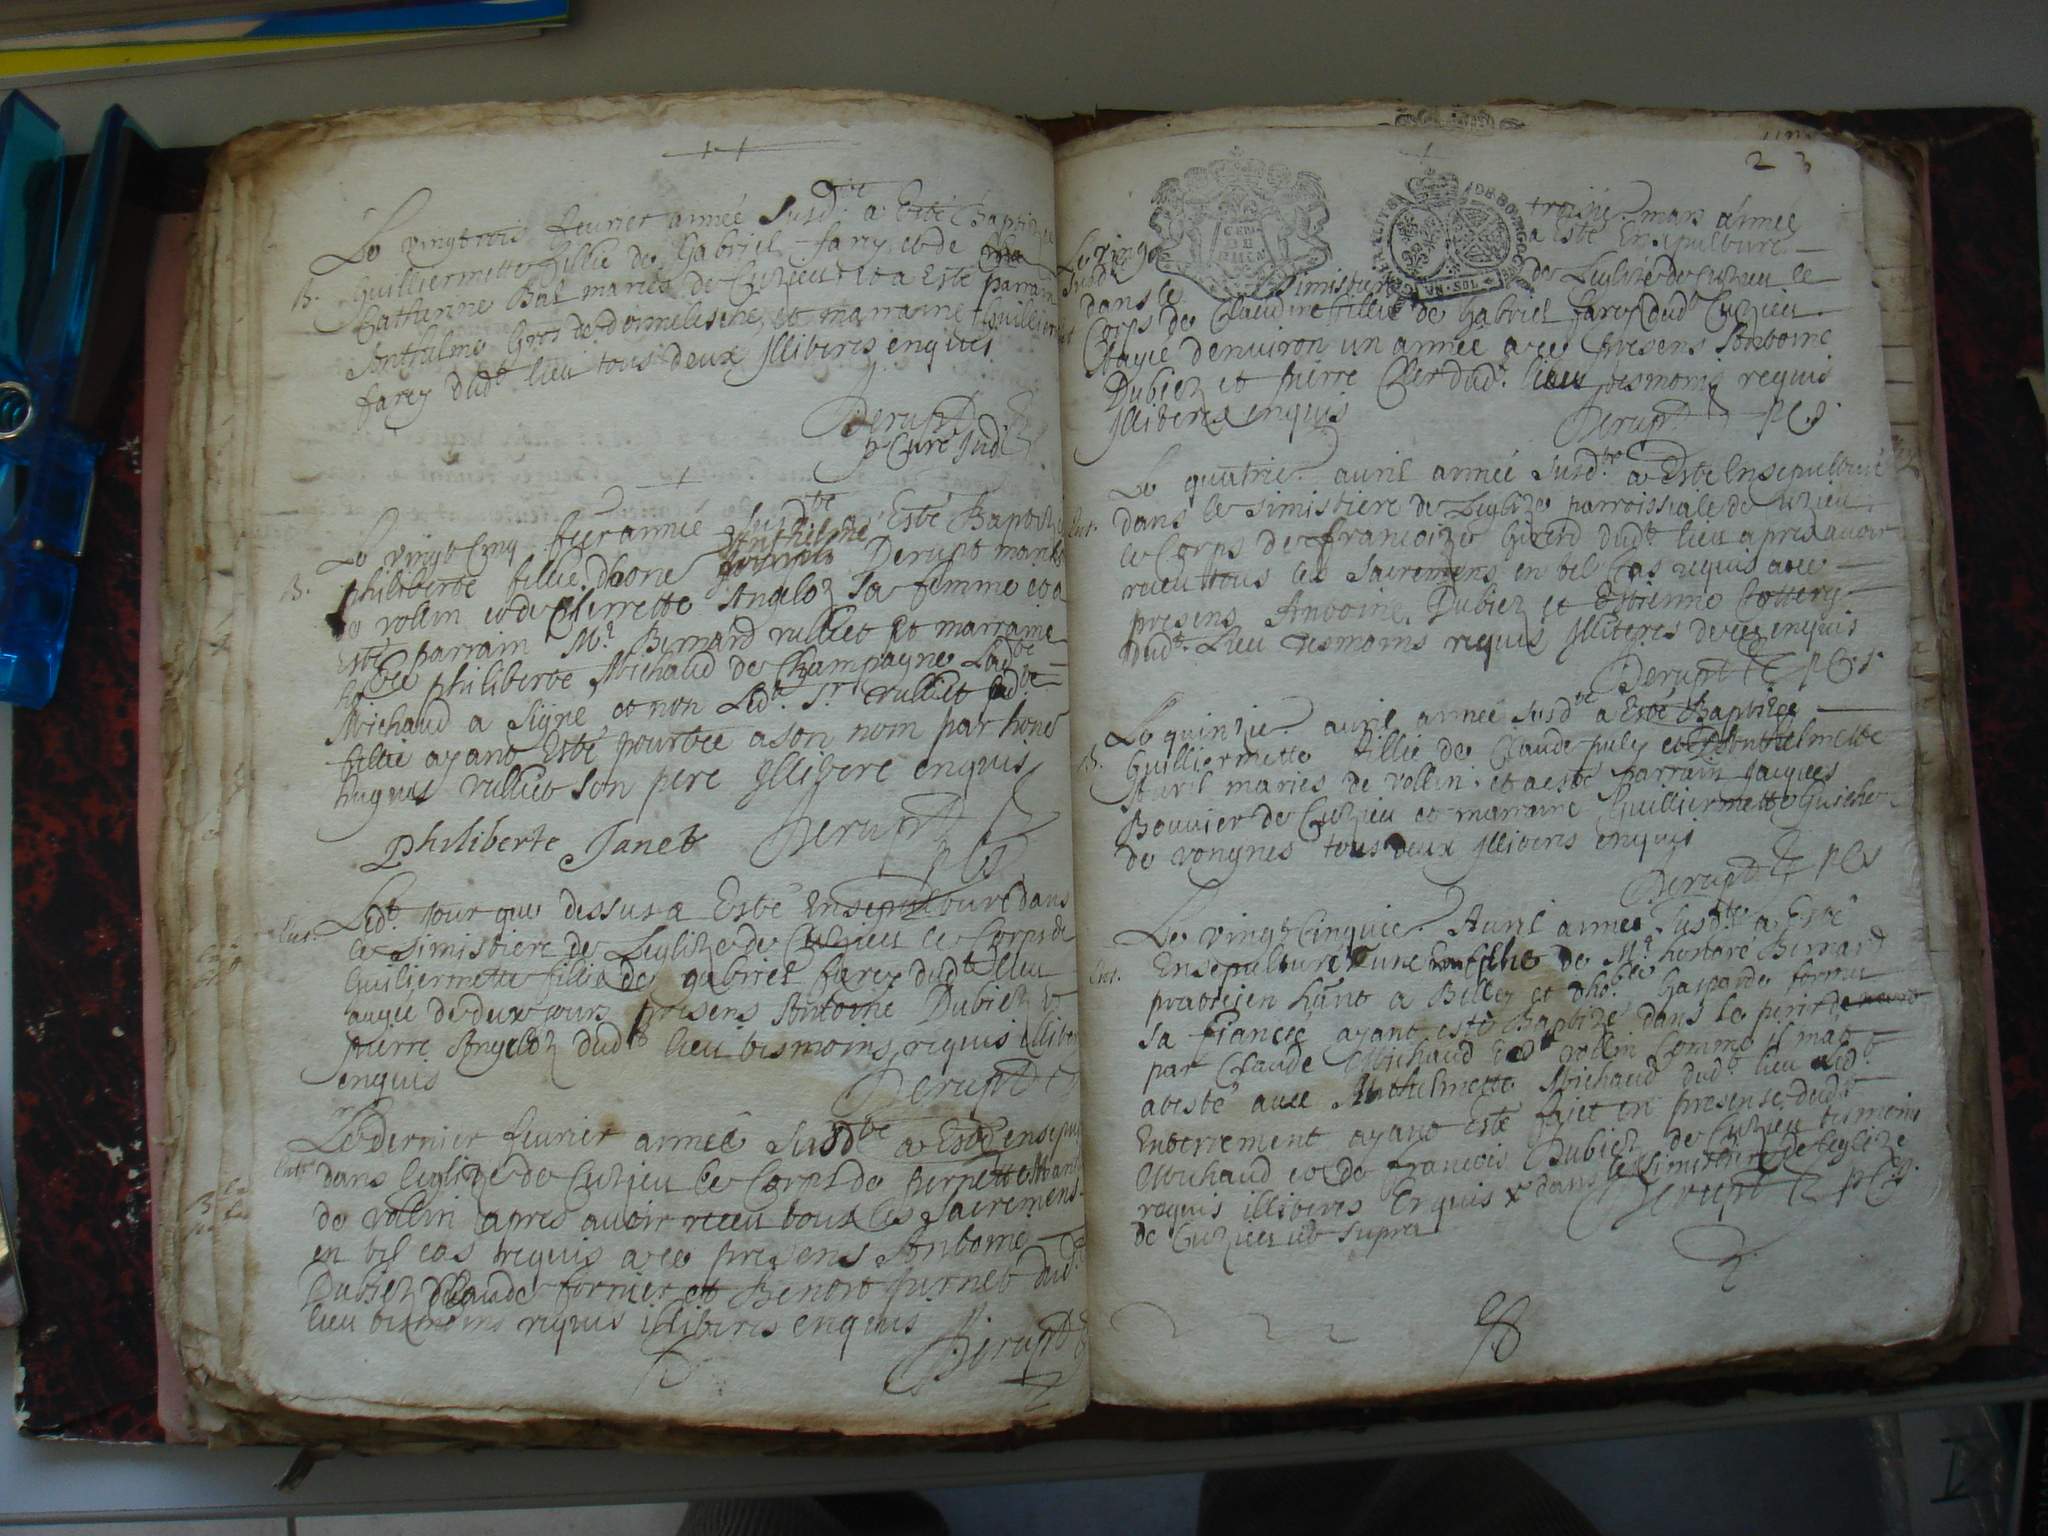 Le vingtrois feurier année Susd.te a Esté Baptizee
B. Guilliermette fillie de Gabriel farey et de
Catherine Bal mariés de Cuzieu et a Esté parrain
Anthelme Gros de donnelesche, et marraine Guillierm
farey dud.t lieu tous deux Illiteres enquis
Derupt
Curé Sud.
Le vingt Cinq feu.er année Susd.te a Esté Baptizé
B. philiberte fillie dhone Anthelme Derupt marcht
de vollin et de Pierrette Angeloz Sa femme et a
Esté parrain M.e Bernard rulliet et marraine
philiberte Michaud de Champagne Lad.te
Michaud a Signé et non Led.t S.r rulliet lad.te
fillie ayant Esté pourtée a son nom par hone
hugues rulliet son pere Illitere enquis
Philiberte Janet Derupt
p C S
Ent. Led.t Jour que dessus a Esté Ensepulturé dans
le Simistiere de Leglize de Cuzieu le Corps de
Guiliermette fillie de gabriel farey dud.t lieu
augée de deux jours presens Antoine Dubiez &
pierre Angeloz dud.t lieu tesmoins requis illiter
enquis
Derupt
Le dernier feurier année Susd.te a Esté ensepul
Ent. dans leglize de Cuzieu le Corps de Pernette
de vollin apres auoir receu tous les Sacremens
en tel cas requis avec presens Antoine
Dubiez Claude fornier et Benoit Jurnet dud.t
lieu tesmoins requis illiteres enquis
Derupt
23
Le vingt troizie. mars année
Susd.te a Esté Ensepulturé
GENERALITE DE BOURGOGNE
UN · SOL
dans le Simistiere de Leglize de Cuzieu le
Corps de Claudine fillie de Gabriel farey dud.t Cuzieu
Aagée denuiron un année avec presens Antoine
Dubiez et pierre Cler dud.t lieu tesmoins requis
Illiteres enquis
Derupt p C S
Le quatrie. auril année Susd.te a Esté Ensepulturé
Ent. dans le Simistiere de Leglize parroissiale de Cuzieu
le Corps de francoize Girerd dud.t lieu apres auoir
receu tous les Sacremens en tel Cas requis avec
presens Antoine Dubiez et Estienne Cottery
Dud.t Lieu tesmoins requis Illiteres de ce enquis
Derupt p C S
Le quinzie. auril année Susd.te a Esté Baptizée
B. Guilliermette fillie de Claude puley et Anthelmette
Auril mariés de vollin et a esté parrain Jacques
Bouuier de Cuzieu et marraine Guilliermette Guiche
de vongnes tous deux Illiteres enquis
Derupt p C S
Le vingt Cinquie. Auril année Susd.te a Esté
Ent. Ensepulturé une fille de M.e honoré Bernard
praticien hant a Belley et dho.ble Gasparde fornier
Sa fiancée ayant esté Baptizé dans le peril
par Claude Michaud de vollin Comme il mat
atesté auec Anthelmette Michaud dud.t lieu Led.t
Enterrement ayant Esté fait en presense dud.t
Michaud et de francois Dubiez de Cuzieu tesmoins
requis illiteres Enquis x dans le Simistiere de leglize
de Cuzieu ut supra Derupt p C S